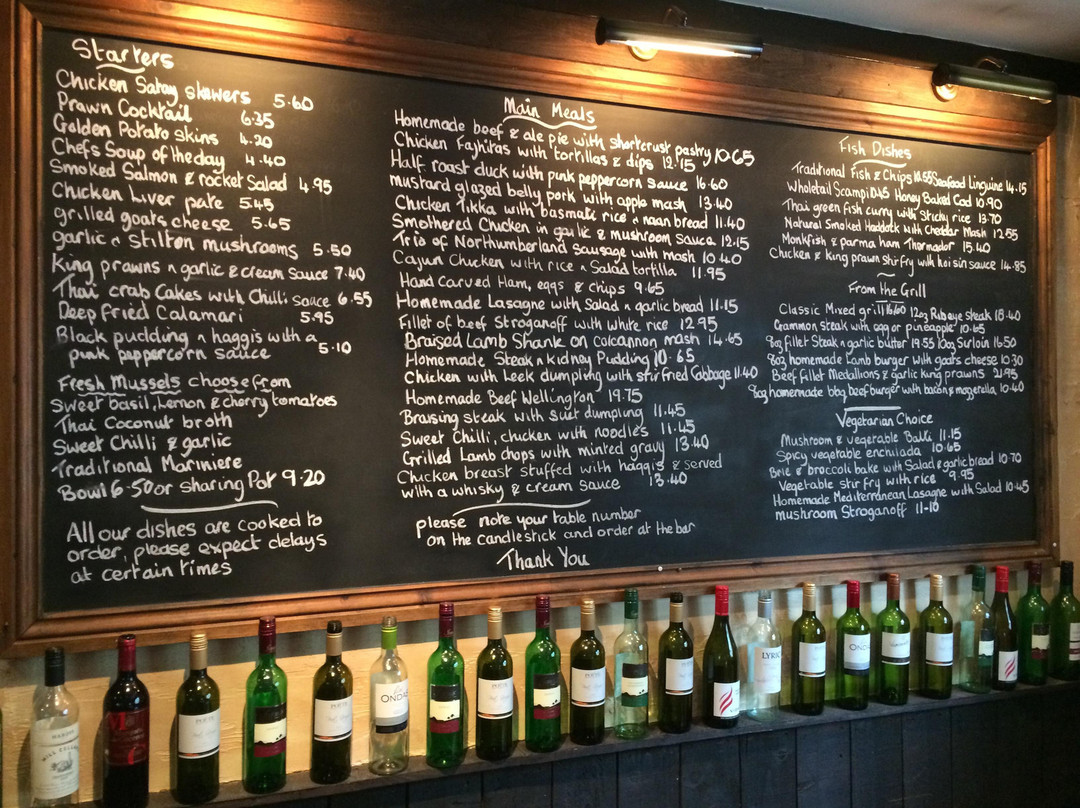 Starters
Chicken Satay skewers 5.60
Prawn Cocktail 6.35
Golden Potato skins 4.20
Chefs Soup of the day 4.40
Smoked Salmon & rocket Salad 4.95
Chicken Liver pate 5.45
grilled goats cheese 5.65
garlic n stilton mushrooms 5.50
King prawns n garlic & cream sauce 7.40
Thai crab Cakes with Chilli sauce 6.55
Deep fried Calamari 5.95
Black pudding n haggis with a
pink peppercorn sauce 5.10
Fresh Mussels choose from
Sweet basil, Lemon & cherry tomatoes
Thai Coconut broth
Sweet Chilli & garlic
Traditional Mariniere
Bowl 6.50 or sharing Pot 9.20
All our dishes are cooked to
order, please expect delays
at certain times
Main Meals
Homemade beef & ale pie with shortcrust pastry 10.65
Chicken Fajhitas with tortillas & dips 12.15
Half roast duck with punk peppercorn sauce 16.60
mustard glazed belly pork with apple mash 13.40
Chicken Tikka with basmati rice n naan bread 11.40
Smothered Chicken in garlic & mushroom sauce 12.15
Trio of Northumberland sausage with mash 10.40
Cajun Chicken with rice n Salad tortilla 11.95
Hand Carved Ham, eggs & chips 9.65
Homemade Lasagne with Salad n garlic bread 11.15
Fillet of beef Stroganoff with white rice 12.95
Braised Lamb Shank on colcannon mash 14.65
Homemade Steak n kidney Pudding 10.65
Chicken with Leek dumpling with stir fried Cabbage 11.40
Homemade Beef Wellington 19.75
Braising steak with suet dumpling 11.45
Sweet Chilli, chicken with noodles 11.45
Grilled Lamb chops with minted gravy 13.40
Chicken breast stuffed with haggis & served
with a whisky & cream sauce 13.40
please note your table number
on the candlestick and order at the bar
Thank You
Fish Dishes
Traditional Fish & Chips 10.55 Seafood Linguine 14.15
Wholetail Scampi 10.45 Honey Baked Cod 10.90
Thai green fish curry with sticky rice 13.70
Natural Smoked Haddock with Cheddar Mash 12.55
Monkfish & parma ham Thormador 15.40
Chicken & king prawn stir fry with hoisin sauce 14.85
From the Grill
Classic Mixed grill 16.60 12oz Ribeye Steak 18.40
Gammon steak with egg or pineapple 10.65
8oz fillet Steak n garlic butter 19.55 10oz Surloin 16.50
8oz homemade Lamb burger with goats cheese 10.30
Beef fillet Medallions & garlic king prawns 21.95
8oz homemade bbq beef burger with bacon & mozzerella 10.40
Vegetarian Choice
Mushroom & vegetable Balti 11.15
Spicy vegetable enchilada 10.65
Brie & broccoli bake with Salad & garlic bread 10.70
Vegetable stir fry with rice 9.95
Homemade Mediterranean Lasagne with Salad 10.45
mushroom Stroganoff 11-10
ONDAS
LYRIC